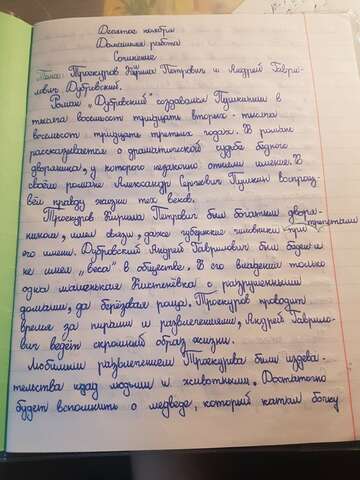 Десятое ноября
Домашняя работа
Сочинение
Тема: Троекуров Кирила Петрович и Андрей Гаври-
лович Дубровский.
Роман „Дубровский" создавался Пушкиным в
тысяча восемьсот тридцать втором - тысяча
восемьсот тридцать третьем годах. В романе
рассказывается о драматической судьбе бедного
дворянина, у которого незаконно отняли имение. В
своём романе Александр Сергеевич Пушкин воспроиз-
вёл правду жизни тех веков.
Троекуров Кирила Петрович был богатым дворя-
нином, имел связи, даже губернские чиновники трепетали при
его имени. Дубровский Андрей Гаврилович был беден и
не имел „веса" в обществе. В его владении только
одна маленькая Кистенёвка с разрушенными
домами, да берёзовая роща. Троекуров проводит
время за пирами и развлечениями, Андрей Гаврило-
вич ведёт скромный образ жизни.
Любимыми развлечением Троекурова были издева-
тельства над людьми и животными. Достаточно
будет вспомнить о медведе, который катал бочку